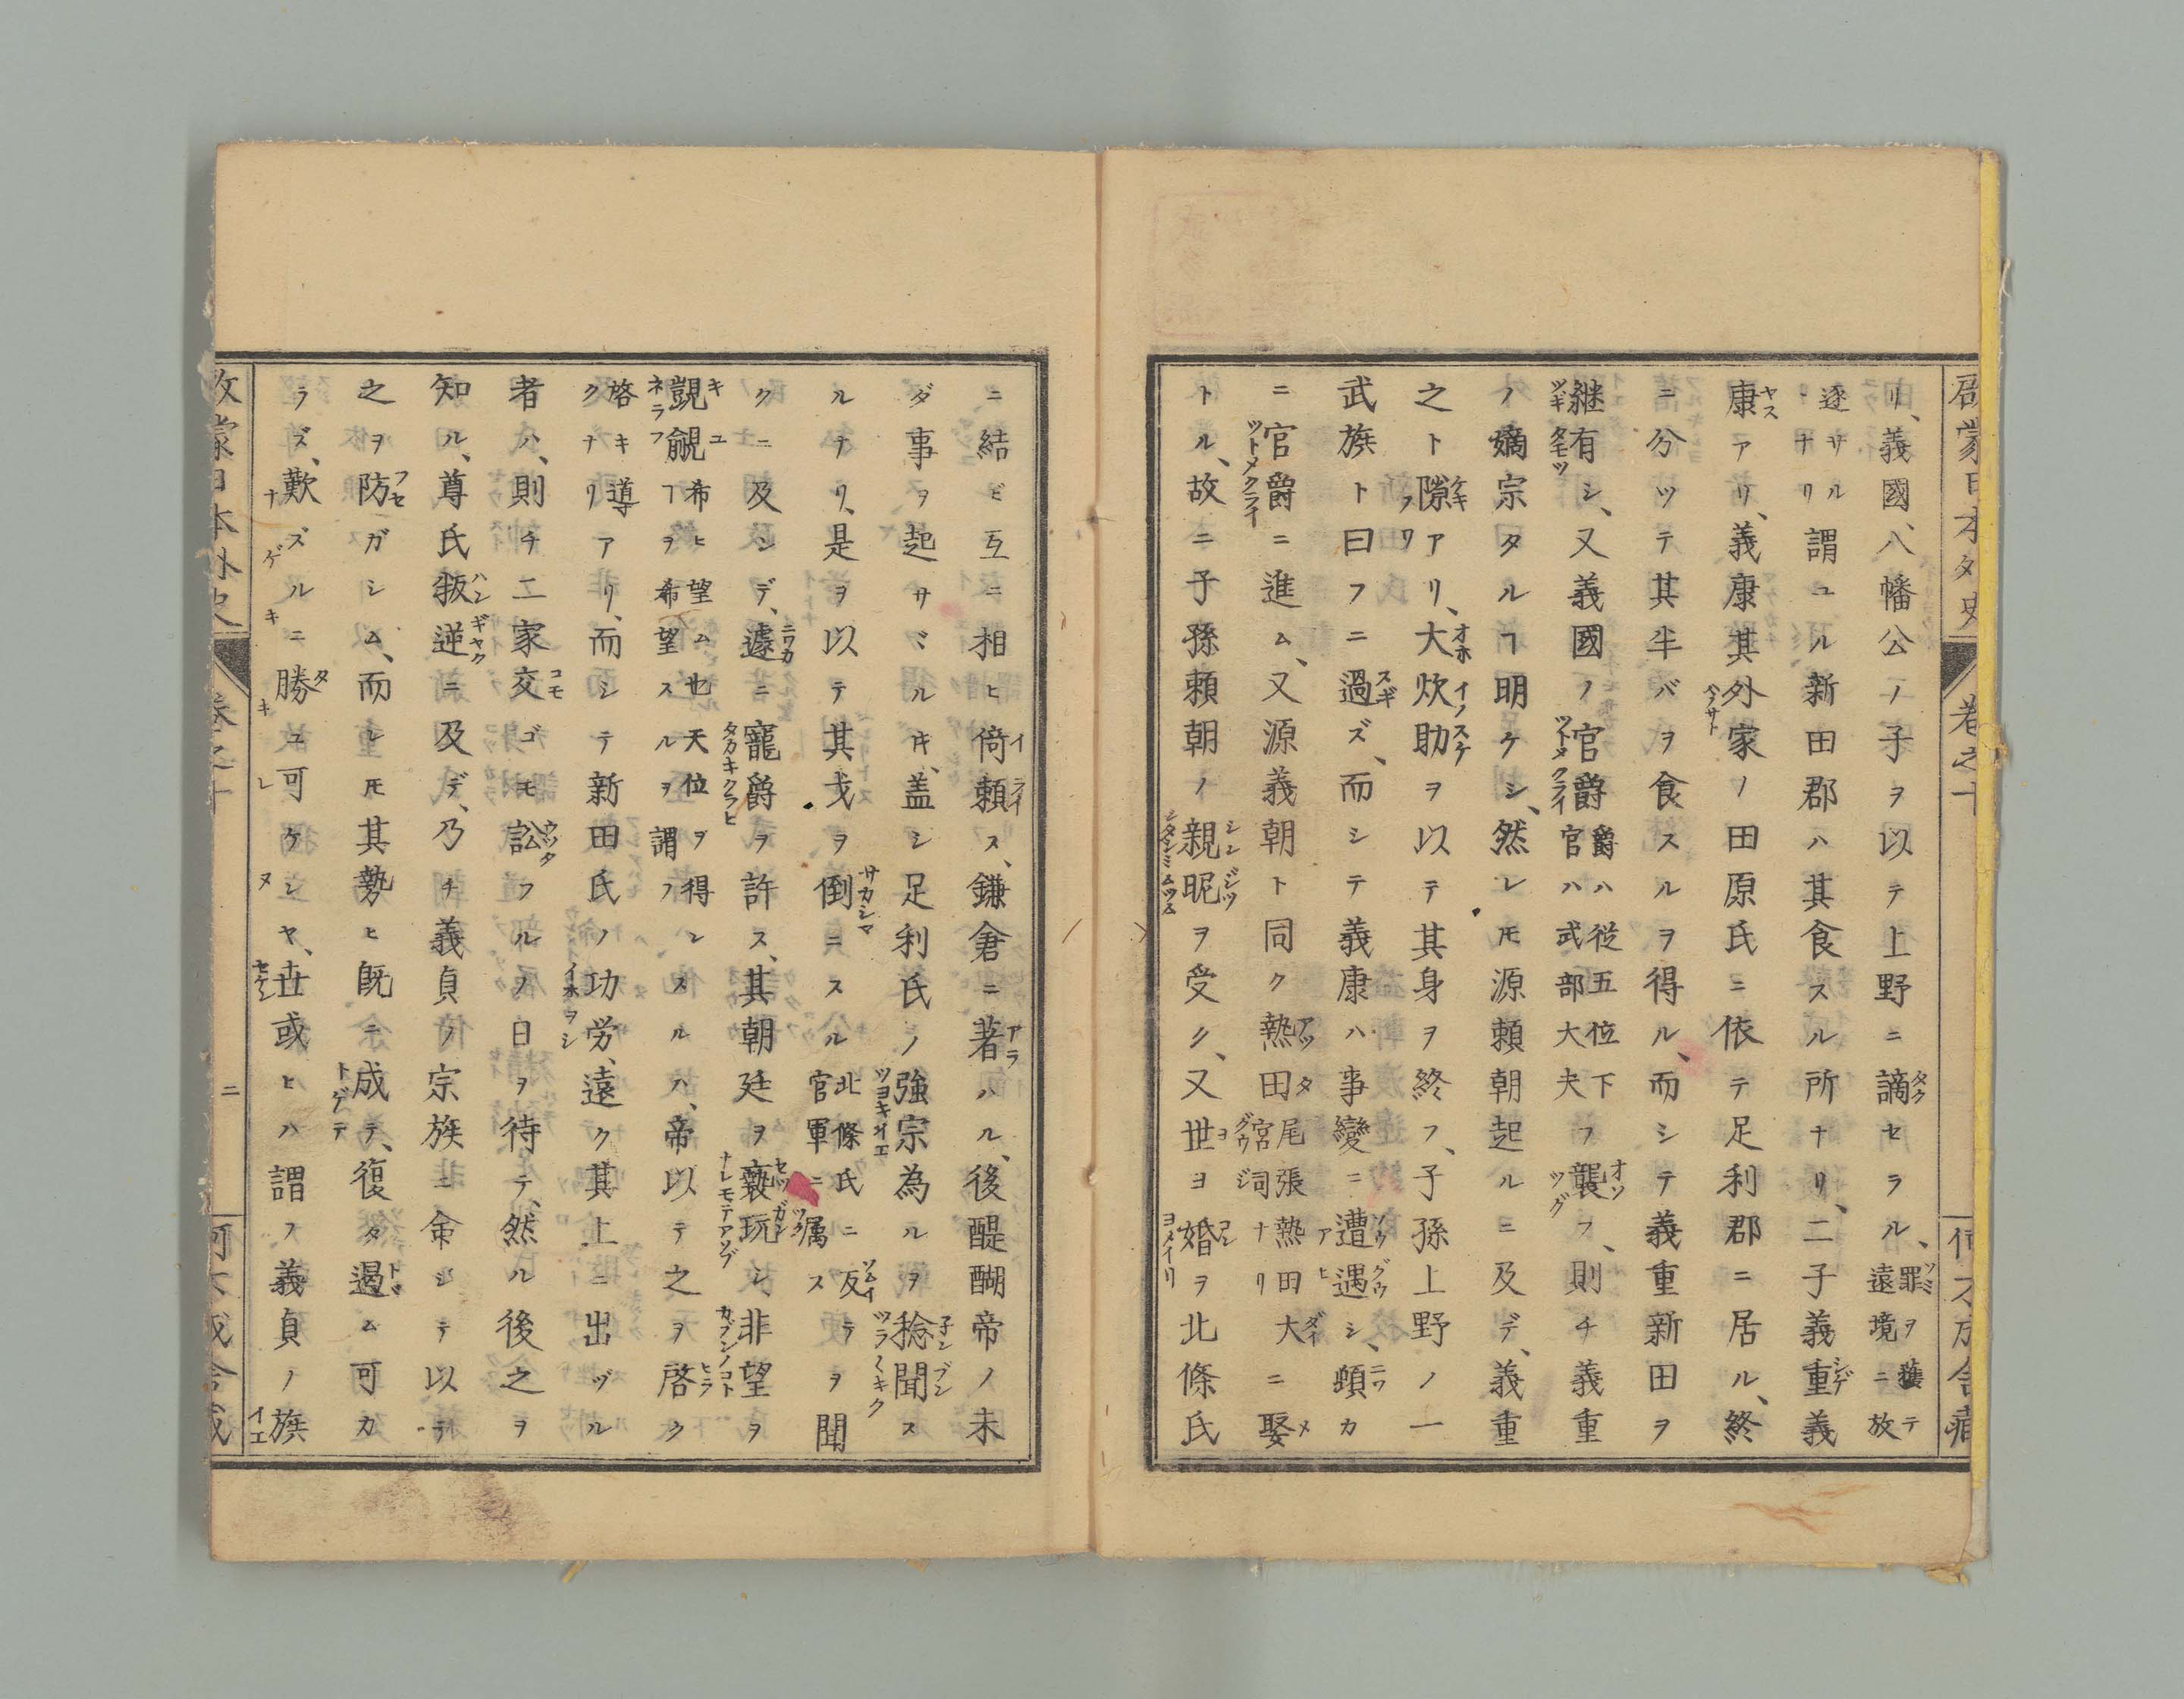 啓蒙日本外史 卷之十
リ、義國、八幡公ノ子ヲ以テ上野ニ謫セラル、罪ヲ獲テ遠境ニ放
逐サルナリ謂ユル新田郡ハ其食スル所ナリ、二子義重義
康アリ、義康其外家ノ田原氏ニ依テ足利郡ニ居ル、終
ニ分ツテ其半バヲ食スルヲ得ル、而シテ義重新田ヲ
継有シ、又義國ノ官爵爵ハ從五位下官ハ武部大夫フ襲フ、則チ義重
ノ嫡宗タルヿ明ケシ、然レ𪜈源頼朝起ルニ及デ、義重
之ト隙アリ、大炊助ヲ以テ其身ヲ終フ、子孫上野ノ一
武族ト曰フニ過ズ、而シテ義康ハ事變ニ遭遇シ、頓カ
ニ官爵ニ進ム、又源義朝ト同ク熱田尾張熱田大宮司ナリニ娶
トル、故ニ子孫頼朝ノ親昵ヲ受ク、又世ヨ婚ヲ北條氏
ニ結ビ互ニ相ヒ倚頼ス、鎌倉ニ著ハル、後醍醐帝ノ未
ダ事ヲ起サヾル𪜈、盖シ足利氏ノ強宗為ルヲ稔聞ス
ルナリ、是ヲ以テ其戈ヲ倒ニスル北條氏ニ反テ官軍ニ属スヲ聞
クニ及ンデ、遽ニ寵爵ヲ許ス、其朝廷ヲ褻玩シ非望ヲ
覬覦希ヒ望ム也天位ヲ得ンヿヲ希望スルヲ謂フスルハ、帝以テ之ヲ啓ク
啓キ導クナリナリ、而シテ新田氏ノ功労、遠ク其上ニ出ヅル
者ハ、則チ二家交ゴモ訟フルノ日ヲ待テ、然ル後之ヲ
知ル、尊氏叛逆ニ及デ、乃チ義貞ノ宗族ニ命シテ以テ
之ヲ防ガシム、而レ𪜈其勢ヒ既ニ成テ、復タ遏ム可カ
ラズ、歎ズルニ勝ユ可ケンヤ、世或ヒハ謂フ義貞ノ族
二